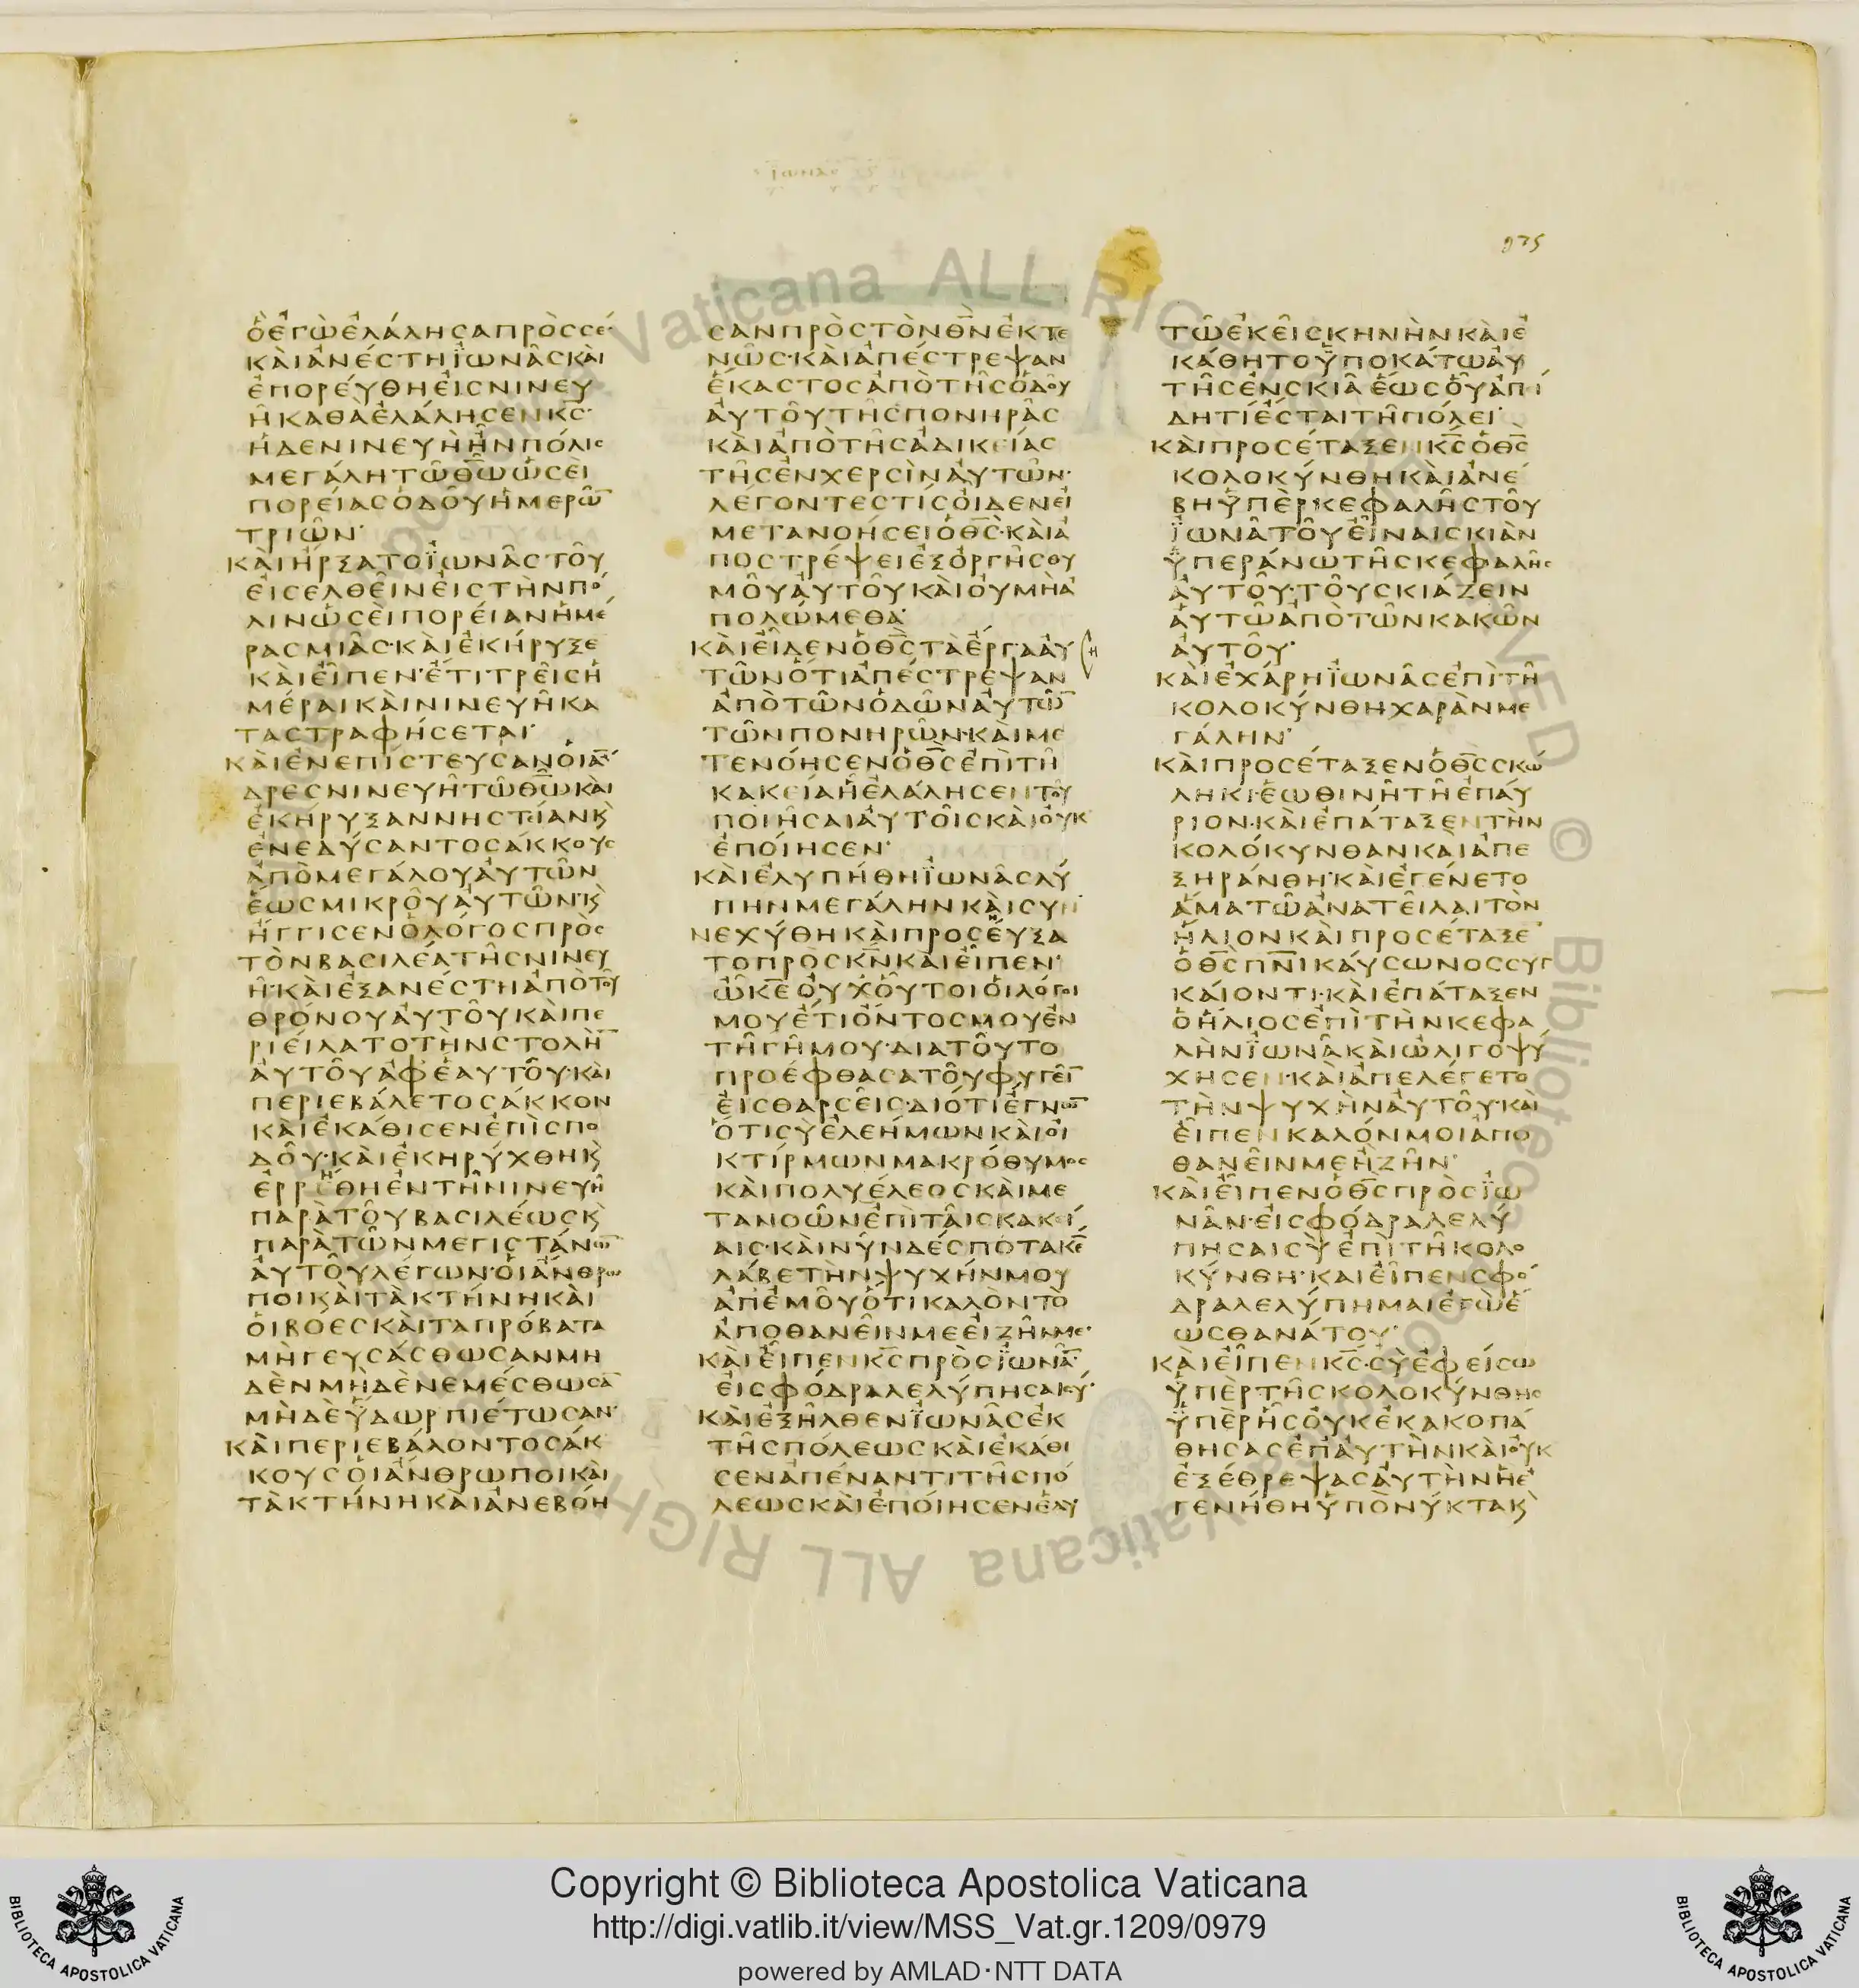 975
ὃἐγὼἐλάλησαπρὸςσέ·
κὰιἀνέστηϊωνᾶςκὰι
ἐπορέυθηἐιςνινευ
ῆκαθὰἐλάλησενκ̅ς̅·
ἡδενινευὴἦνπόλις
μεγάλητῶθ̅ω̅ὡσὲι
πορέιαςὁδοῦἡμερῶ̅
τριῶν·
κὰιἤρξατοϊωνᾶςτοῦ
ἐισελθεῖνἐιςτὴνπό
λινὡσὲιπορέιανἡμέ
ραςμιᾶς·κὰιἐκήρυξε
κὰιεἶπεν·ἔτιτρεῖςἡ
μέραικὰινινευῆκα
ταστραφήσεται·
κὰιἐνεπίστευσανοἱἄ̅
δρεςνινευῆτῶθ̅ω̅κὰι
ἐκήρυξαννηστείανκ̀
ἐνεδύσαντοσάκκους
ἀπὸμεγάλουἀυτῶν
ἕωςμικροῦἀυτῶν·κ̀
ἤγγισενὁλόγοςπρὸς
τὸνβασιλέατῆςνινευ
ῆ·κὰιἐξανέστηἀπὸτοῦ
θρόνουἀυτοῦκὰιπε
ριείλατοτὴνστολὴ̅
ἀυτοῦἀφἑαυτοῦ·κὰι
περιεβάλετοσάκκον
κὰιἐκάθισενἐπὶσπο
δοῦ·κὰιἐκηρύχθηκ̀
ἐρρέθηἐντῆνινευῆ
παρὰτοῦβασιλέωςκ̀
παρὰτῶνμεγιστάνω̅
ἀυτοῦλέγων·ὁιἄνθρω
ποικὰιτὰκτήνηκὰι
ὁιβόεςκὰιτὰπρόβατα
μὴγευσάσθωσανμη
δὲνμηδὲνεμέσθωσα̅
μὴδὲὕδωρπιέτωσαν·
κὰιπεριεβάλοντοσάκ
κουςὁιἄνθρωποικὰι
τὰκτήνηκὰιἀνεβόη
σανπρὸςτὸνθ̅ν̅ἐκτε
νῶς·κὰιἀπέστρεψαν
ἕκαστοςἀπὸτῆςὁδοῦ
ἀυτοῦτῆςπονηρᾶς
κὰιἀπὸτῆςἀδικείας
τῆςἐνχερσὶνἀυτῶν·
λέγοντεςτίςὁιδενεἰ
μετανοήσειὁθ̅ς̅·κὰιἀ
ποστρέψειἐξὀργῆςθυ
μοῦἀυτοῦκὰιὀυμὴἀ
πολώμεθα·
κὰιεἶδενὁθ̅ς̅τὰἔργαἀυ
η
τῶνὅτιἀπέστρεψαν
ἀπὸτῶνὁδῶνἀυτῶ̅
τῶνπονηρῶν·κὰιμε
τενόησενὁθ̅ς̅ἐπὶτῆ
κακείαἧἐλάλησεντοῦ
ποιῆσαιἀυτοῖςκὰιὀυκ
ἐπόιησεν·
κὰιἐλυπήθηϊωνᾶςλύ
πηνμεγάληνκὰισυν
νεχύθηκὰιπροσεύξα
τοπρὸςκ̅ν̅κὰιεἶπεν·
ὦκ̅ε̅ὀυχὁῦτοιὁιλόγοι
μουἔτιὄντοςμουἐν
τῆγῆμου·διατοῦτο
προέφθασατοῦφυγεῖ̅
ἐιςθαρσεῖς·διότιἔγνω̅
ὅτισὺἐλεήμωνκὰιὀι
κτίρμωνμακρόθυμος
κὰιπολυέλεοςκὰιμε
τανοῶνἐπὶταῖςκακεί
αις·κὰινῦνδέσποτακ̅ε̅
λάβετὴνψυχήνμου
ἀπἐμοῦὅτικαλὸντὸ
ἀποθανεῖνμεἐιζῆνμε·
κὰιεἶπενκ̅ς̅πρὸςϊωνᾶ̅·
ἐισφόδραλελύπησαισύ·
κὰιἐξῆλθενϊωνᾶςἐκ
τῆςπόλεωςκὰιἐκάθι
σενἀπέναντιτῆςπό
λεωςκὰιἐπόιησενἑαυ
τῶἐκεῖσκηνὴνκὰιἐ
κάθητοὑποκάτωἀυ
τῆςἐνσκιᾶἕωςοὗἀπί
δητίἔσταιτῆπόλει·
κὰιπροσέταξενκ̅ς̅ὁθ̅ς̅
κολοκύνθηκὰιἀνέ
βηὑπὲρκεφαλῆςτοῦ
ϊωνᾶτοῦεἶναισκιὰν
ὑπεράνωτῆςκεφαλῆς
ἀυτοῦ·τοῦσκιάζειν
ἀυτῶἀπὸτῶνκακῶν
ἀυτοῦ·
κὰιἐχάρηϊωνᾶςἐπὶτῆ
κολοκύνθηχαρὰνμε
γάλην·
κὰιπροσέταξενὁθ̅ς̅σκώ
ληκιἑωθινῆτῆἐπάυ
ριον·κὰιἐπάταξεντὴν
κολόκυνθανκαιἀπε
ξηράνθη·κὰιἐγένετο
ἅματῶἀνατεῖλαιτὸν
ἥλιονκὰιπροσέταξε
ὁθ̅ς̅πν̅ικάυσωνοςσυγ
κάιοντι·κὰιἐπάταξεν
ὁἥλιοςἐπὶτὴνκεφα
λὴνϊωνᾶκὰιὠλιγοψύ
χησεν·κὰιἀπελέγετο
τὴνψυχὴνἀυτοῦ·κὰι
εἶπενκαλόνμοιἀπο
θανεῖνμεἢζῆν·
κὰιεἶπενὁθ̅ς̅πρὸςϊω
νᾶν·εἰσφόδραλελύ
πησαισὺἐπὶτῆκολο
κύνθη·κὰιεἶπενσφό
δραλελύπημαιἐγὼἕ
ωςθανάτου·
κὰιεἶπενκ̅ς̅·σὺἐφείσω
ὑπὲρτῆςκολοκύνθης
ὑπὲρἧςὀυκἐκακοπά
θησαςἐπἀυτὴνκὰιὀυκ
ἐξέθρεψαςἀυτὴνἣἐ
γενήθηὑπὸνύκτακ̀
Copyright © Biblioteca Apostolica Vaticana
http://digi.vatlib.it/view/MSS_Vat.gr.1209/0979
powered by AMLAD·NTT DATA